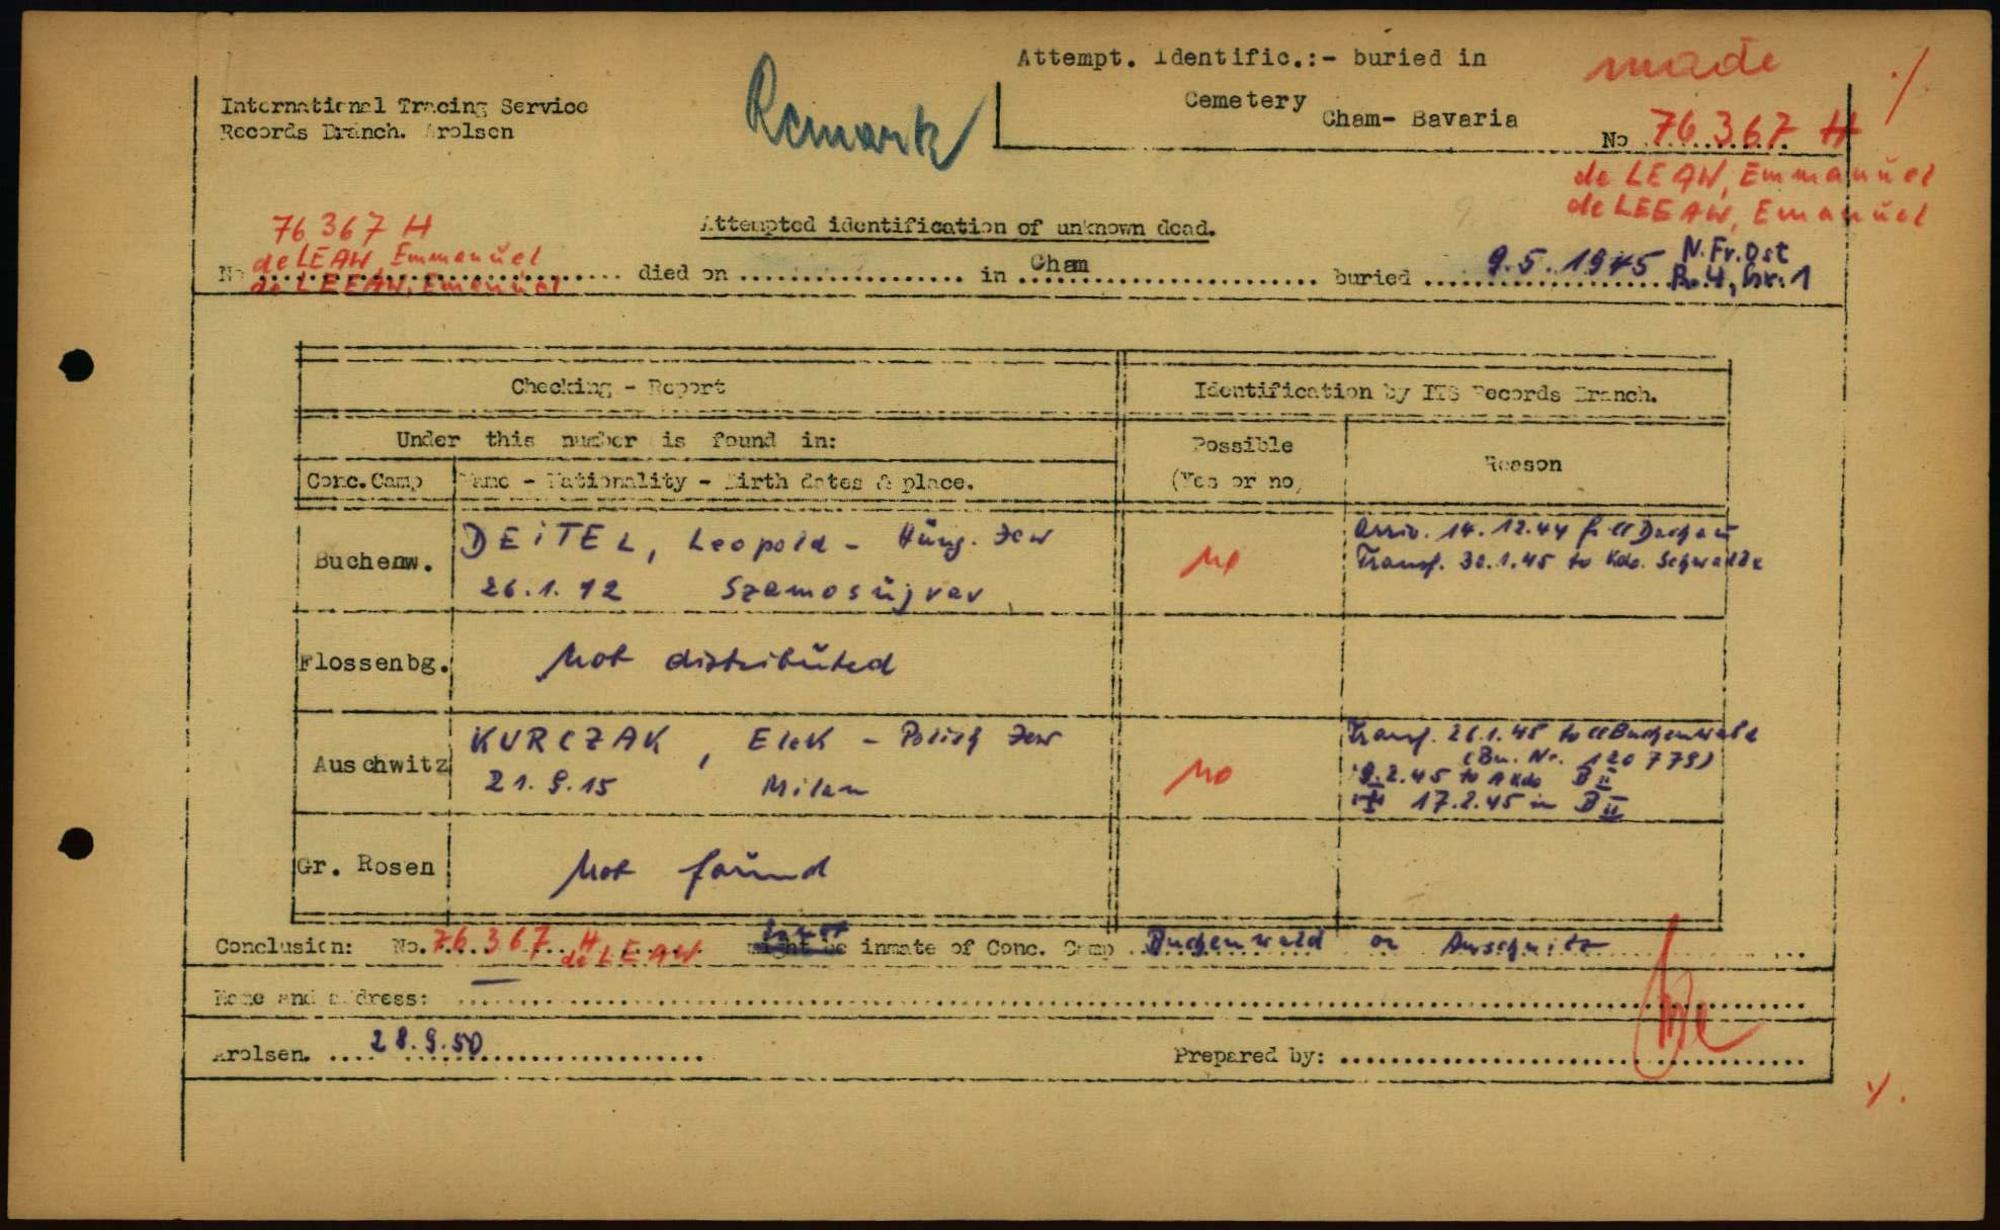 Attempt. Identific.:- buried in
made
./
International Tracing Service
Remark
Cemetery
Cham- Bavaria
Records Branch. Arolsen
No 76367 H
de LEAW, Emmanuel
de LEEAW, Emanuel
76367 H
Attempted identification of unknown dead.
de LEAW, Emmanuel
No de LEEAW, Emanuel died on .......... in Cham .......... buried 9.5.1945 N.Fr.Ost
R.4, Gr.1
Checking - Report
Identification by ITS Records Branch.
Under this number is found in:
Possible
(Yes or no)
Reason
Conc.Camp
Name - Nationality - Birth dates & place.
Buchenw.
DEITEL, Leopold - Hung. Jew
26.1.12 Szamosujvav
no
Arriv. 14.12.44 f. CC Dachau
Transf. 30.1.45 to Kdo. Schwalbe
Flossenbg.
Not distributed
Auschwitz
KURCZAK, Elek - Polish Jew
21.9.15 Milan
no
Transf. 26.1.45 to CC Buchenwald
(Bu. Nr. 120779)
9.2.45 to AKdo B II
17.2.45 in B II
Gr. Rosen
Not found
Conclusion: No. 76367 H de LEAW might be inmate of Conc. Camp Buchenwald or Auschwitz
Name and address: ..........
Arolsen. .... 28.9.50 ..........
Prepared by: ..........